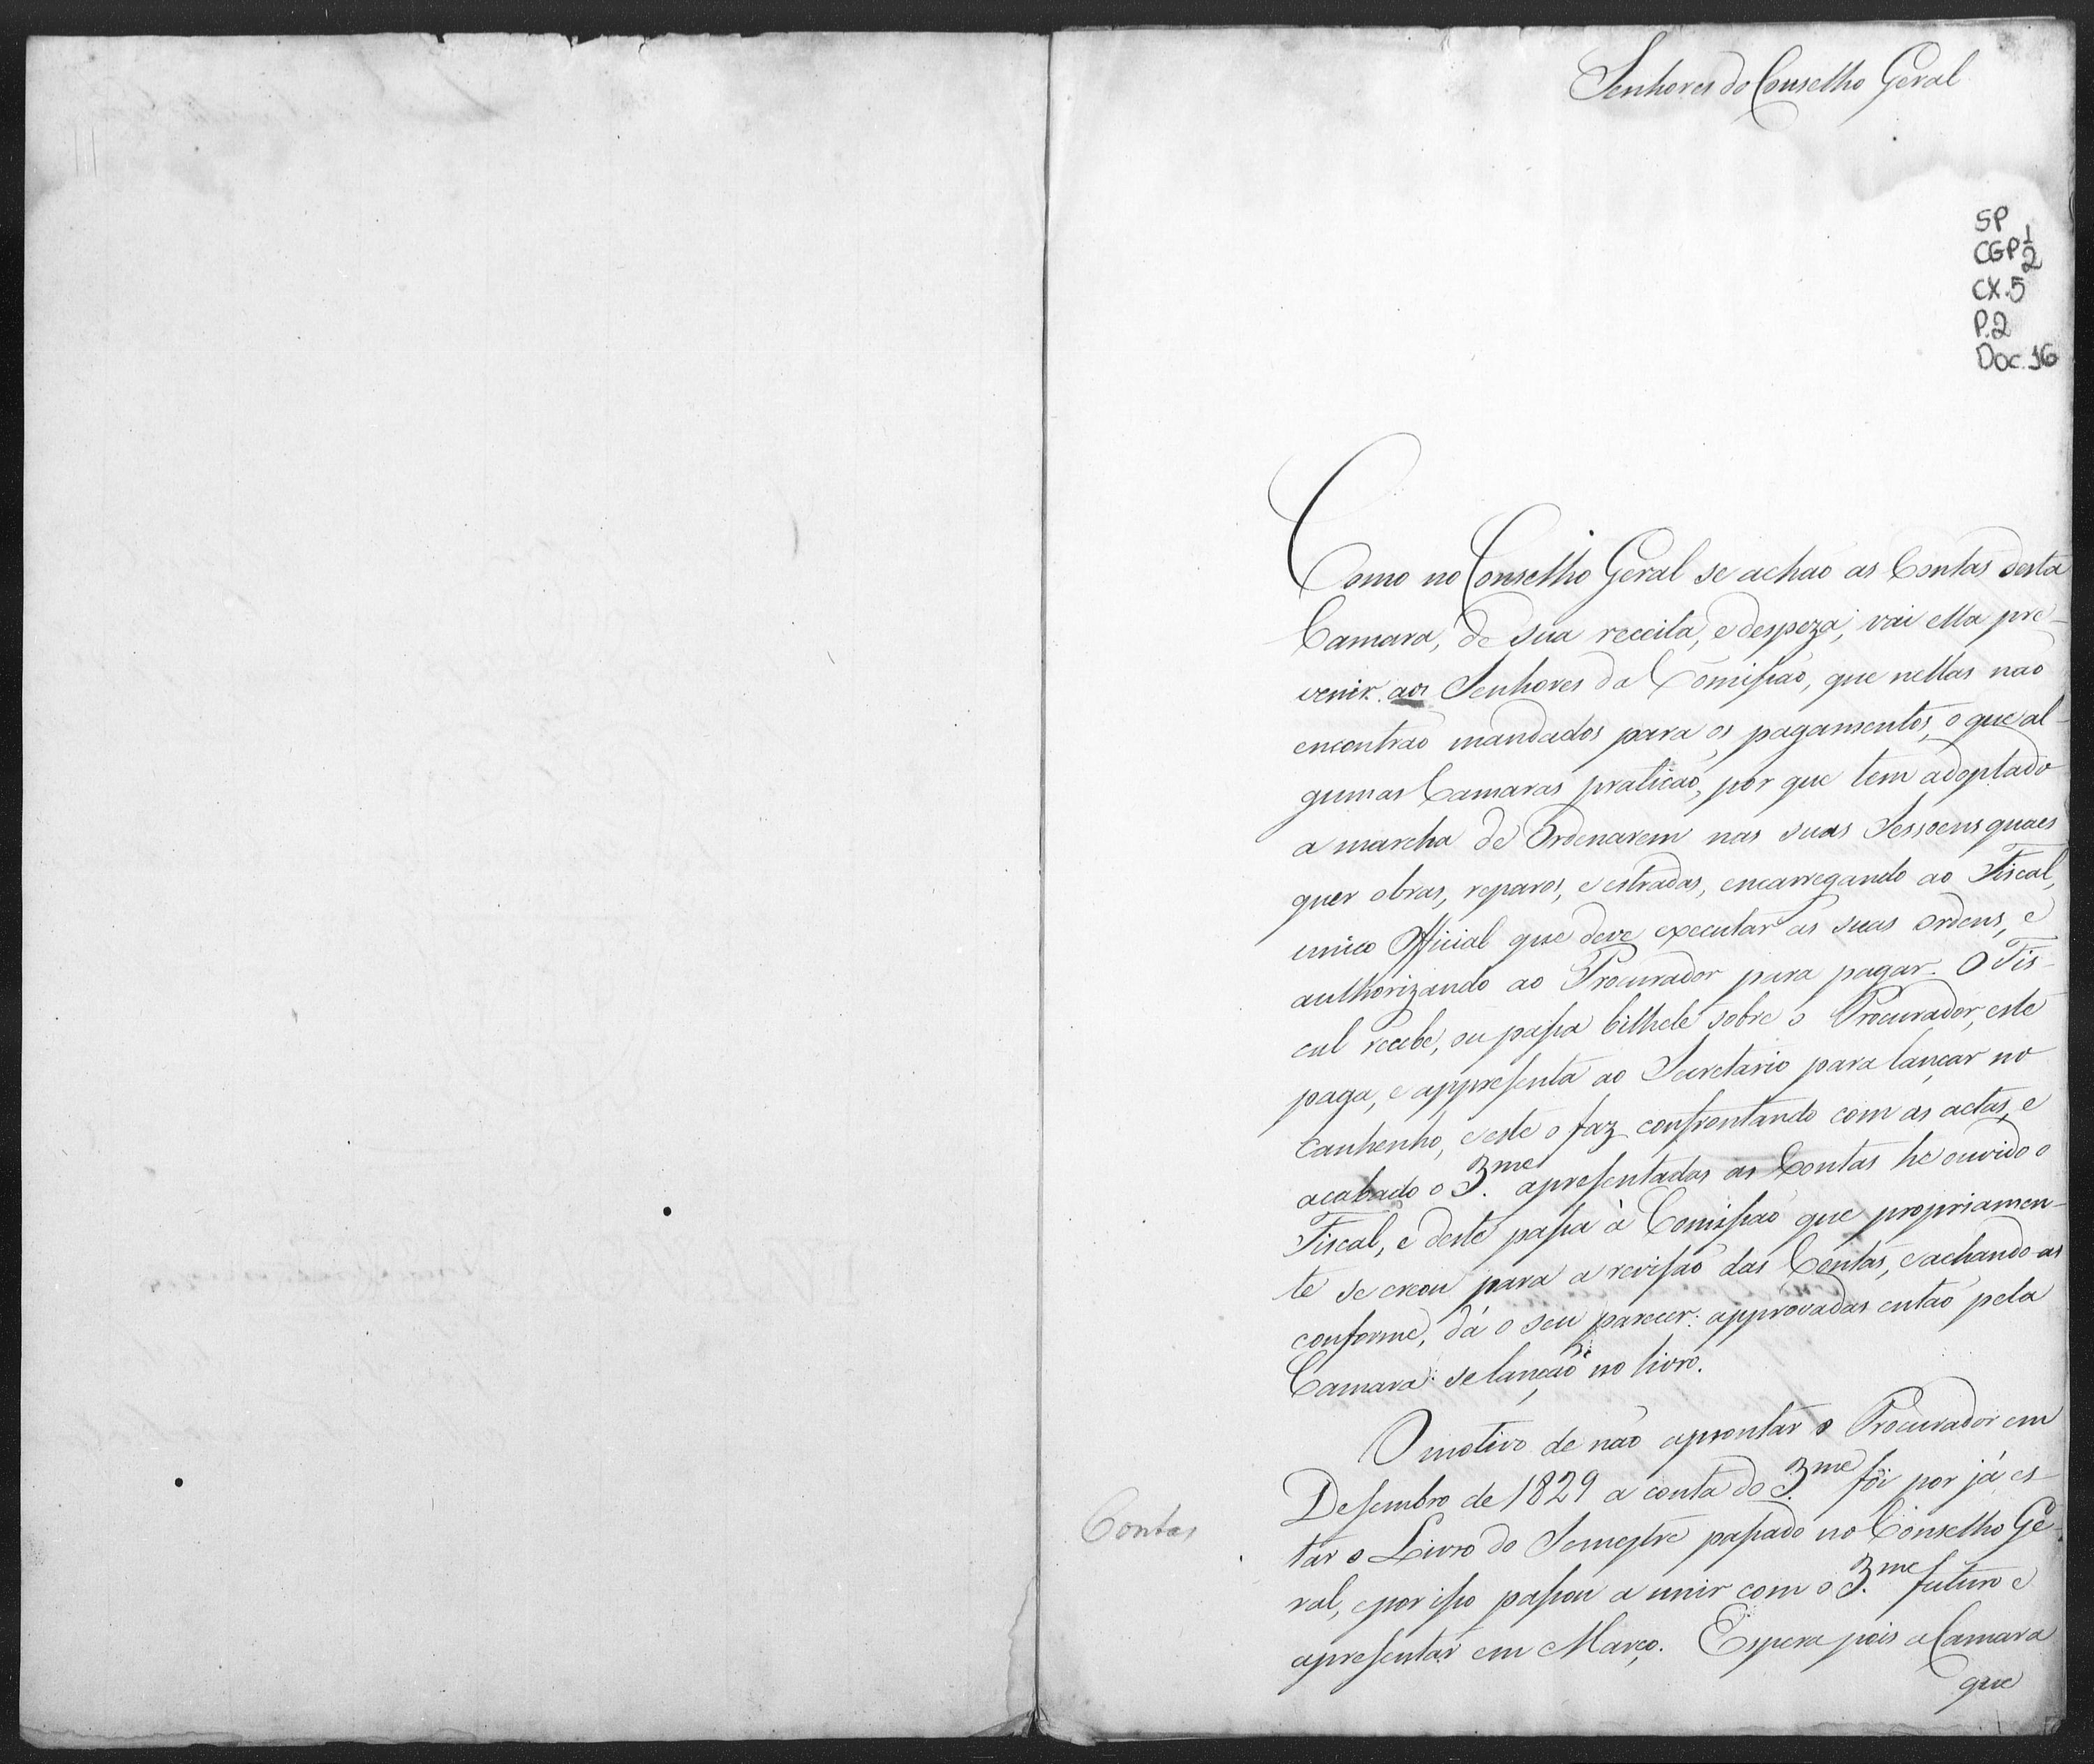 Senhores do Conselho Geral
SP
CGP 1/2
CX.5
P.2
Doc.16
Como no Conselho Geral se achaõ as Contas desta
Camara, de sua receita, e despeza, vai ella pre-
venir aos Senhores da Comiſsaõ, que nellas naõ
encontraõ mandados para os pagamentos, o que al-
gumas Camaras praticaõ, por que tem adoptado
a marcha de Ordenarem nas suas Sessoens quaes
quer obras, reparos, e estradas, encarregando ao Fiscal,
unico Official que deve executar as suas ordens, e
authorizando ao Procurador para pagar. O Fis-
cal recebe, ou paſsa bilhete sobre o Procurador, este
paga, e appreſenta ao Secretario para lançar no
Canhenho, e este o faz confrontando com as actas, e
acabado o 3.me apreſentadas as Contas he ouvido o
Fiscal, e deste paſsa à Comiſsaõ que propriamen-
te se creou para a reviſaõ das Contas, e achando-as
conforme, dá o seu parecer: approvadas entaõ pela
Camara se lançaõ no livro.
O motivo de naõ aprontar o Procurador em
Deſembro de 1829 a conta do 3.me foi por já es-
tar o Livro do Semestre paſsado no Conselho Ge-
ral, e por iſso paſsou a unir com o 3.me futuro e
apreſentar em Março. Espera pois a Camara
que
Contas